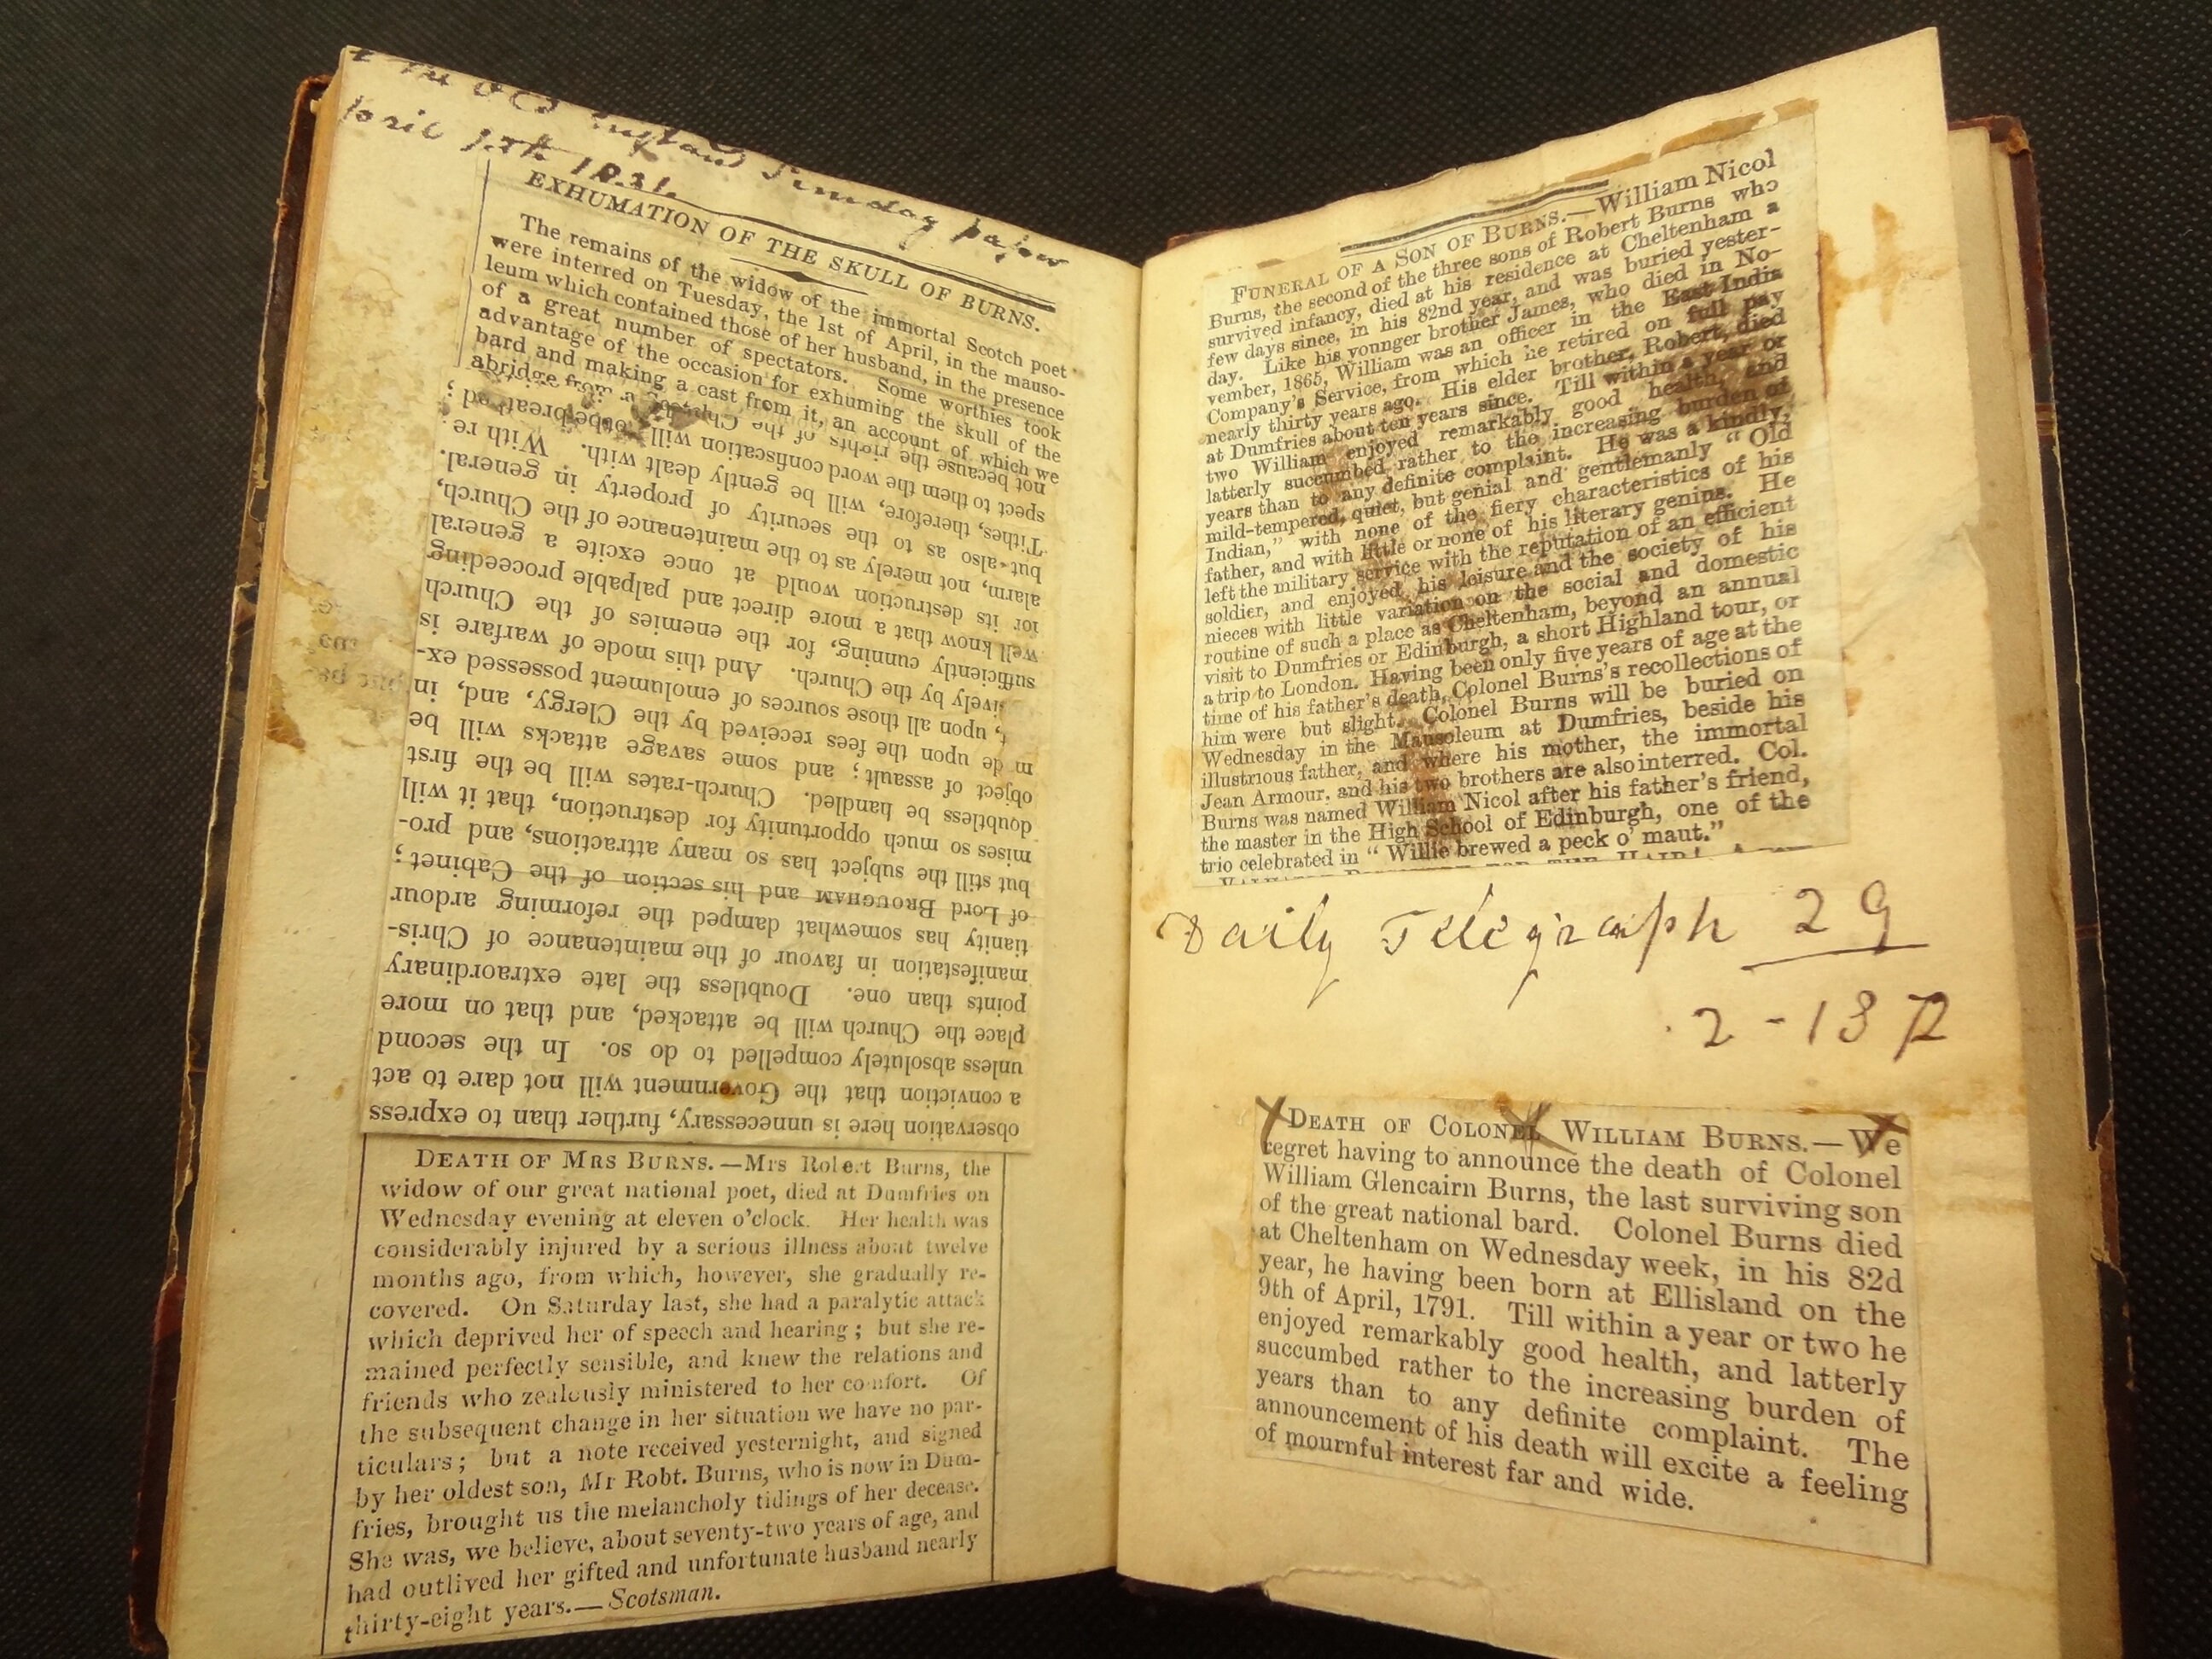 England Sunday paper
EXHUMATION OF THE SKULL OF BURNS.
The remains of the widow of the immortal Scotch poet
were interred on Tuesday, the 1st of April, in the mauso-
leum which contained those of her husband, in the presence
of a great number of spectators. Some worthies took
advantage of the occasion for exhuming the skull of the
bard and making a cast from it, an account of which we
abridge from a
observation here is unnecessary, further than to express
a conviction that the Government will not dare to act
unless absolutely compelled to do so. In the second
place the Church will be attacked, and that on more
points than one. Doubtless the late extraordinary
manifestation in favour of the maintenance of Chris-
tianity has somewhat damped the reforming ardour
of Lord BROUGHAM and his section of the Cabinet;
but still the subject has so many attractions, and pro-
mises so much opportunity for destruction, that it will
doubtless be handled. Church-rates will be the first
object of assault; and some savage attacks will be
m de upon the fees received by the Clergy, and, in
t, upon all those sources of emolument possessed ex-
ively by the Church. And this mode of warfare is
sufficiently cunning, for the enemies of the Church
well know that a more direct and palpable proceeding
for its destruction would at once excite a general
alarm, not merely as to the maintenance of the Church,
but also as to the security of property in general.
Tithes, therefore, will be gently dealt with. With re
spect to them the word confiscation will not be breathed;
not because the rights of the Ch
DEATH OF MRS BURNS.—Mrs Robert Burns, the
widow of our great national poet, died at Dumfries on
Wednesday evening at eleven o'clock. Her health was
considerably injured by a serious illness about twelve
months ago, from which, however, she gradually re-
covered. On Saturday last, she had a paralytic attack
which deprived her of speech and hearing; but she re-
mained perfectly sensible, and knew the relations and
friends who zealously ministered to her comfort. Of
the subsequent change in her situation we have no par-
ticulars; but a note received yesternight, and signed
by her oldest son, Mr Robt. Burns, who is now in Dum-
fries, brought us the melancholy tidings of her decease.
She was, we believe, about seventy-two years of age, and
had outlived her gifted and unfortunate husband nearly
thirty-eight years.—Scotsman.
FUNERAL OF A SON OF BURNS.—William Nicol
Burns, the second of the three sons of Robert Burns who
survived infancy, died at his residence at Cheltenham a
few days since, in his 82nd year, and was buried yester-
day. Like his younger brother James, who died in No-
vember, 1865, William was an officer in the East India
Company's Service, from which he retired on full pay
nearly thirty years ago. His elder brother, Robert, died
at Dumfries about ten years since. Till within a year or
two William enjoyed remarkably good health, and
latterly succumbed rather to the increasing burden of
years than to any definite complaint. He was a kindly,
mild-tempered, quiet, but genial and gentlemanly "Old
Indian," with none of the fiery characteristics of his
father, and with little or none of his literary genius. He
left the military service with the reputation of an efficient
soldier, and enjoyed his leisure and the society of his
nieces with little variation on the social and domestic
routine of such a place as Cheltenham, beyond an annual
visit to Dumfries or Edinburgh, a short Highland tour, or
a trip to London. Having been only five years of age at the
time of his father's death, Colonel Burns's recollections of
him were but slight. Colonel Burns will be buried on
Wednesday in the Mausoleum at Dumfries, beside his
illustrious father, and where his mother, the immortal
Jean Armour, and his two brothers are also interred. Col.
Burns was named William Nicol after his father's friend,
the master in the High School of Edinburgh, one of the
trio celebrated in "Willie brewed a peck o' maut."
Daily Telegraph 29
2-1872
DEATH OF COLONEL WILLIAM BURNS.—We
regret having to announce the death of Colonel
William Glencairn Burns, the last surviving son
of the great national bard. Colonel Burns died
at Cheltenham on Wednesday week, in his 82d
year, he having been born at Ellisland on the
9th of April, 1791. Till within a year or two he
enjoyed remarkably good health, and latterly
succumbed rather to the increasing burden of
years than to any definite complaint. The
announcement of his death will excite a feeling
of mournful interest far and wide.